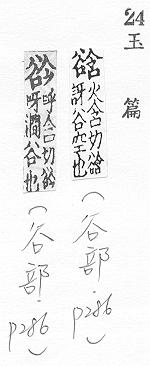 24
玉篇
谽 火含切谽
訝谷空也
(谷部.p286)
谽 呼含切谽
呀澗谷也
(谷部.p286)